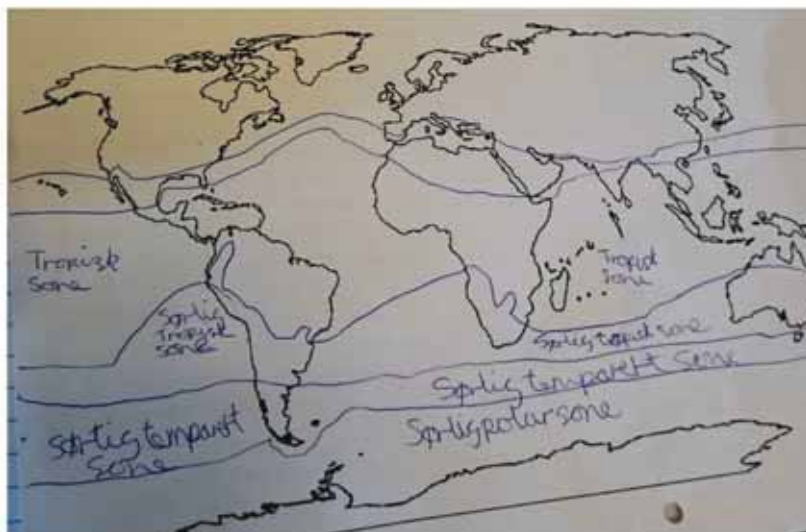 Tropisk
sone
Tropisk
sone
Sørlig
Tropisk
sone
Sørlig tropisk sone
Sørlig temparert sone
Sørlig temparert
sone
Sørlig polar sone